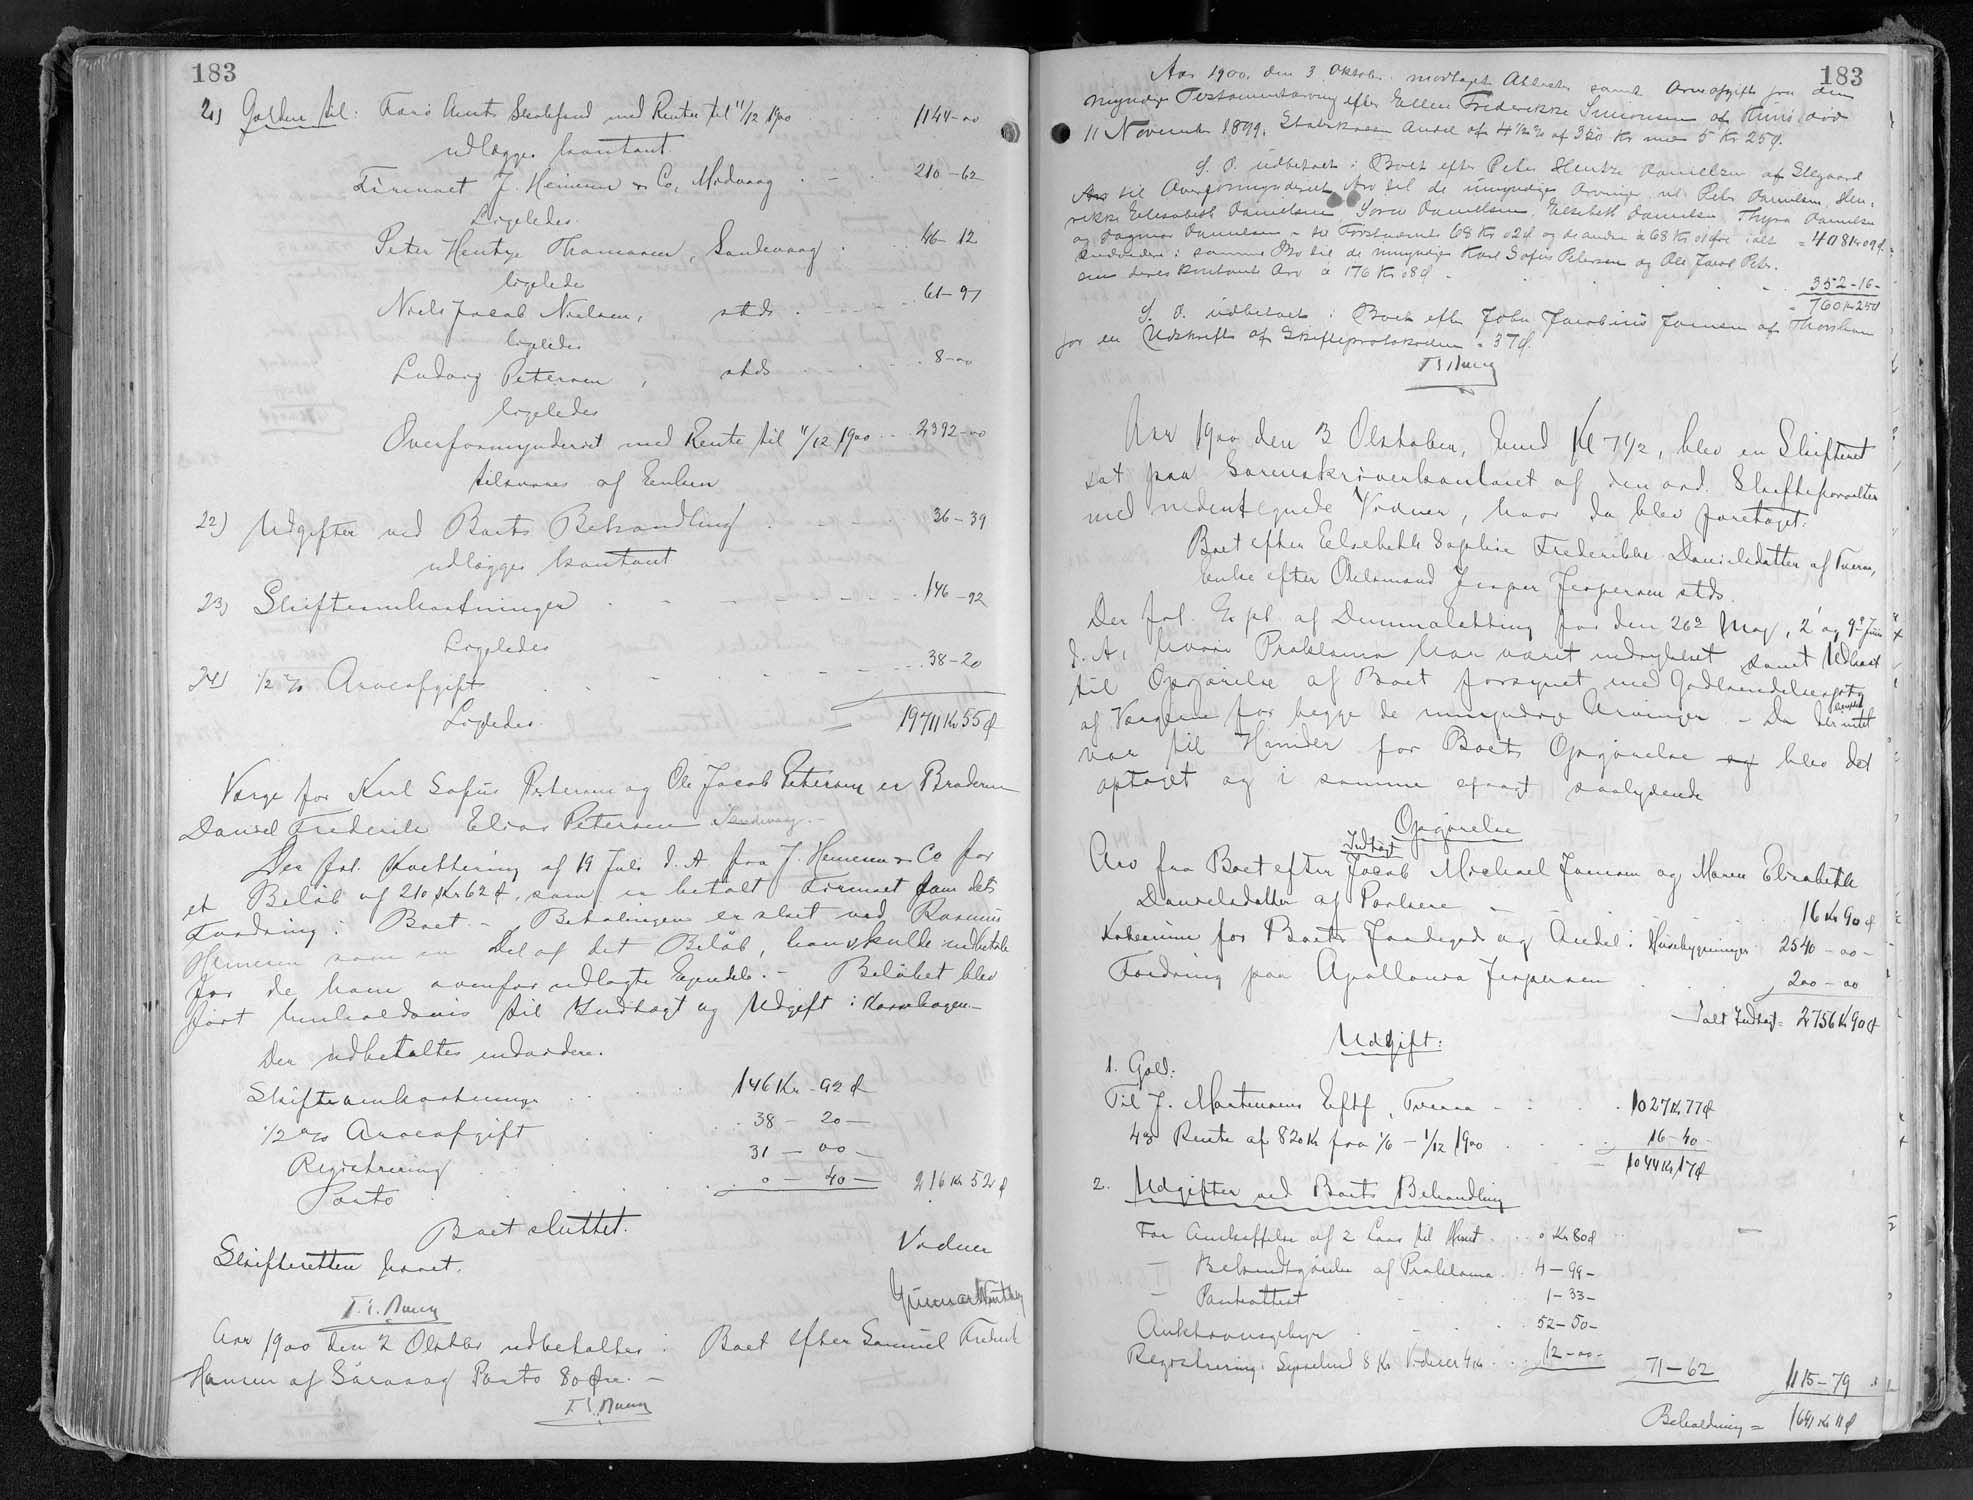 183
21) Gælden til: Færø Amts Skolefond med Renter til 11/12 1900 . . 1144-00
udlægges kontant
Firmaet J. Heinesen & Co, Midvaag . - . 210-62
Ligeledes
Peter Hentze Thomasen, Sandevaag . . . 46-12
ligeledes
Niels Jacob Nielsen, stds . - - - . . 61-97
ligeledes
Ludvig Petersen, stds . . . . 8-00
ligeledes
Overformynderiet med Rente til 11/12 1900 . . . 2392-00
tilsvares af Enken
22) Udgifter ved Boets Behandling . - - . 36-39
udlægges kontant
23) Skifteomkostninger . - - - - - . 146-92
Ligeledes
24) 1/2 % Arveafgift . - - - - . . . 38-20
Ligeledes = 19711 Kr 55 Ø
Værge for Karl Sofus Petersen og Ole Jacob Petersen er Broderen
Daniel Frederik Elias Petersen Sandevaag. -
Der frl. Kvittering af 19 Juli d. A. fra J. Heinesen & Co for
et Beløb af 210 Kr 62 Ø, som er betalt Firmaet som dets
Fordring i Boet. - Betalingen er sket ved Rasmus
Heinesen som en Del af det Beløb, han skulde indbetale
for de ham ovenfor udlagte Ejendele. - Beløbet blev
ført henholdsvis til Indtægt og Udgift i Kassebogen. -
Der udbetaltes endvidere.
Skifteomkostninger . . . . 146 Kr - 92 Ø
1/2 % Arveafgift . . . . 38 - 20 -
Registrering . . . 31 - 00 -
Porto . . . . . 0 - 40 - 216 Kr 52 Ø
Boet sluttet.
Skifteretten hævet.
Vidner
Aar 1900 den 2 Oktober udbetaltes i Boet efter Samuel Frederik
Hansen af Sørvaag Porto 80 Øre. -
183
Aar 1900, den 3 Oktober modtaget Attester samt Arveafgift fra den
myndige Testamentarving efter Ellen Frederikke Simonsen af død
11 November 1899. Statskassen Andel af 4 1/2 % af 350 Kr med 5 Kr 25 Ø.
S. D. udbetalt i Boet efter Peter Hentze Danielsen af
til Overformynderiet Arv til de umyndige Arvinger, nl. Peter Danielsen, Hen-
rikke Elisabeth Danielsen, Danielsen, Elsebeth Danielsen, Thyra Danielsen
og Dagmar Danielsen - til Førstnævnte 68 Kr 02 Ø og de andre à 68 Kr ialt = 408 Kr 09 Ø.
Endvidere i samme Bo til de umyndige Karl Sofus Petersen og Ole Jacob Peter-
sen deres kontante Arv à 176 Kr 08 Ø - . . . 352-16-
= 760 Kr 25 Ø
S. D. udbetalt i Boet efter John Jacobius Joensen af Thorshavn
for en Udskrift af Skifteprotokollen = 37 Ø.
Aar 1900 den 3 Oktober, Emd Kl 7 1/2, blev en Skifteret
sat paa Sorenskriverkontoret af den ord. Skifteforvalter
med undertegnede Vidner, hvor da blev foretaget:
Boet efter Elsebeth Sophie Frederikke Danielsdatter af Tveraa,
Enke efter Odelsmand Jesper Jespersen stds.
Der frl. Expl. af Dimmalætting for den 26de Maj, 2' og 9de Juni
d. A., hvori Proklama har været indrykket samt Udkast
til Opgørelse af Boet forsynet med Godkendelsespaateg
af Værgerne for begge de umyndige Arvinger - Da der intet
var til Hinder for Boets Opgørelse og blev det
optaget og i samme efragt saalydende
Opgørelse
Indtægt
Arv fra Boet efter Jacob Michael Joensen og Maren Elisabeth
Danielsdatter af Porkere - . . . 16 Kr 90 Ø
for Boets Jordegods og Andel i Husebygninger 2540-00-
Fordring paa Apollonia Jespersen . . . 200-00
Ialt Indtægt = 2756 Kr 90 Ø
Udgift:
1. Gæld:
Til J. Mortensens Eftf, Tveraa - . . . 1027 Kr 77 Ø
4% Rente af 820 Kr fra 1/6 - 1/12 1900 . . . 16-40-
= 1044 Kr 17 Ø
2. Udgifter ved Boets Behandling
For Anskaffelse af 2 Laas til Huset . . . 0 Kr 80 Ø
- Bekendtgørelse af Proklama . . 4-99-
- Panteattest . . . 1-33-
Auktionsgebyr . . . . 52-50-
Registrering: Sysselmd 8 Kr Vidner 4 Kr . . . 12-00- 71-62 1115-79
Beholdning = 1641 Kr 11 Ø